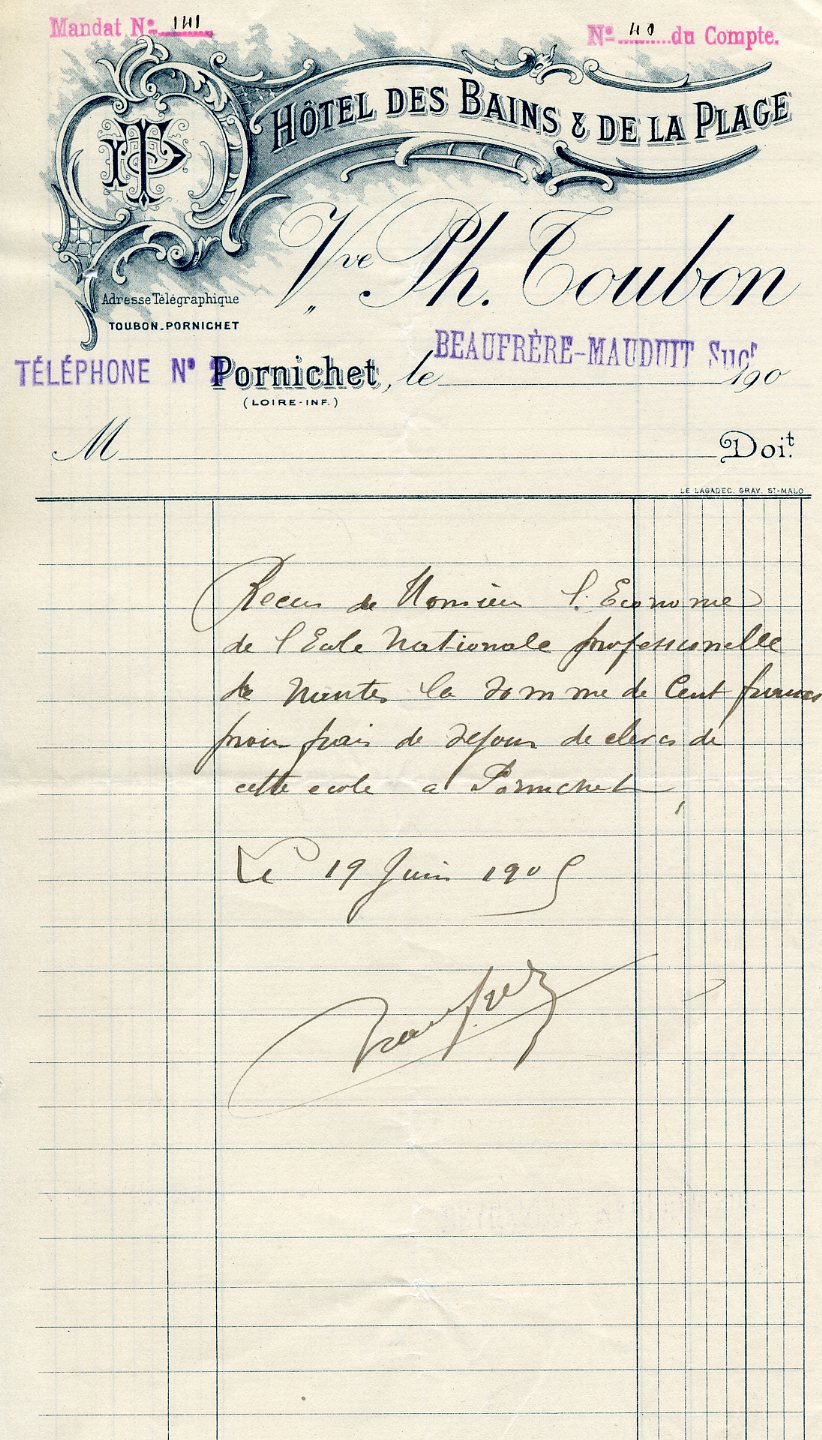 Mandat Nº 141
Nº 40 du Compte.
HÔTEL DES BAINS & DE LA PLAGE
Vve Ph. Toubon
Adresse Télégraphique
TOUBON.PORNICHET
TÉLÉPHONE Nº 2
BEAUFRÈRE-MAUDUIT Sucr
Pornichet, le 190
(LOIRE-INF.)
M Doit.
LE LAGADEC. GRAV. ST-MALO
Recu de Monsieur l'Econome
de l'Ecole Nationale professionelle
de Nantes la somme de Cent francs
pour frais de sejour de cleres de
cette ecole a Pornichet
Le 19 Juin 1905